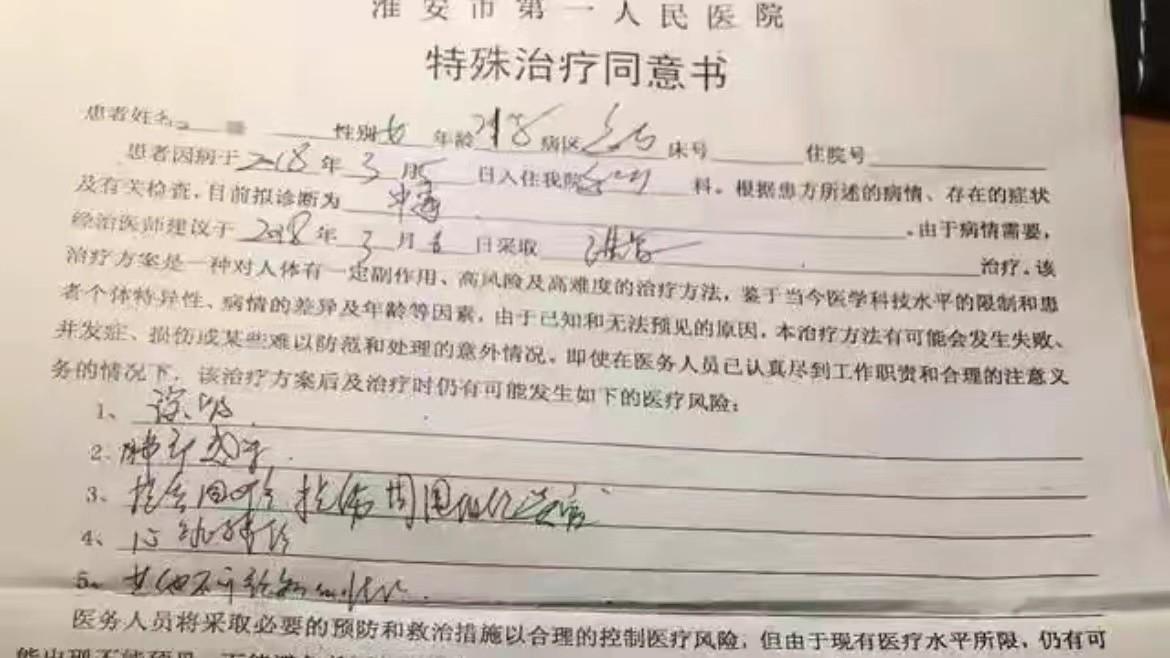 淮安市第一人民医院
特殊治疗同意书
患者姓名 性别 女 年龄 病区 床号 住院号
患者因病于 2018 年 3 月 5 日入住我院 科。根据患方所述的病情、存在的症状
及有关检查，目前拟诊断为 中毒 。由于病情需要，
经治医师建议于 2018 年 3 月 日采取 洗胃 治疗。该
治疗方案是一种对人体有一定副作用、高风险及高难度的治疗方法，鉴于当今医学科技水平的限制和患
者个体特异性、病情的差异及年龄等因素，由于已知和无法预见的原因，本治疗方法有可能会发生失败、
并发症、损伤或某些难以防范和处理的意外情况。即使在医务人员已认真尽到工作职责和合理的注意义
务的情况下，该治疗方案后及治疗时仍有可能发生如下的医疗风险：
1、误吸
2、肺部感染
3、周围
4、心
5、其他不可
医务人员将采取必要的预防和救治措施以合理的控制医疗风险，但由于现有医疗水平所限，仍有可
能出现不能预见、不能